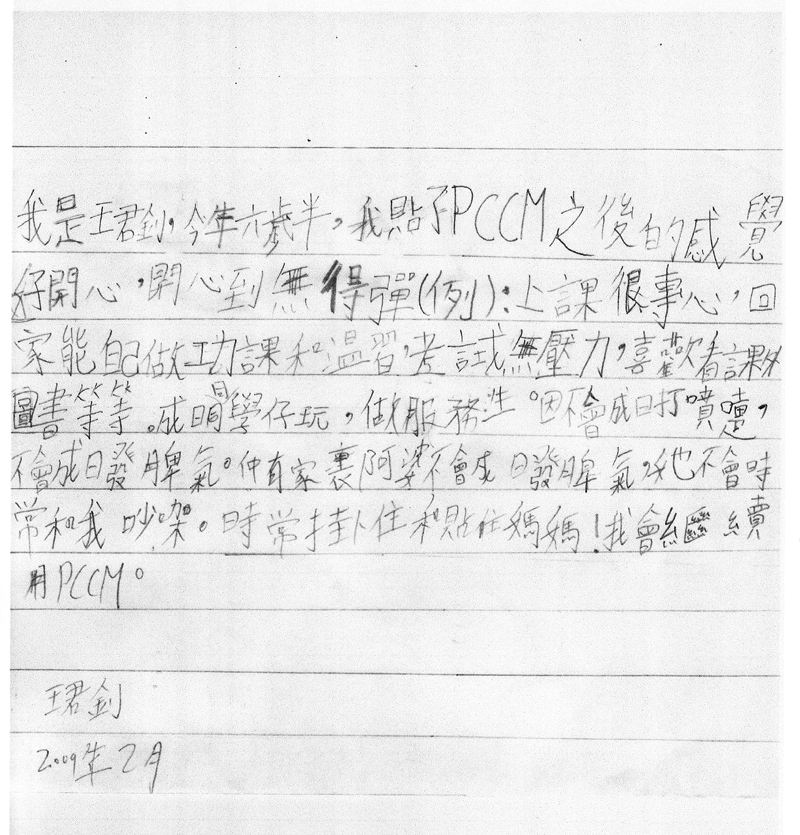 我是珺釗,今年六歲半,我貼了PCCM之後的感覺
好開心,開心到無得彈(例):上課很專心,回
家能自己做功課和溫習,考試無壓力,喜歡看課外
圖書等等。成日同學仔玩,做服務生。因不會成日打噴嚏,
不會成日發脾氣。仲有家裏阿婆不會成日發脾氣,她不會時
常和我吵架。時常掛住和貼住媽媽!我會繼續
用PCCM。
珺釗
2009年2月